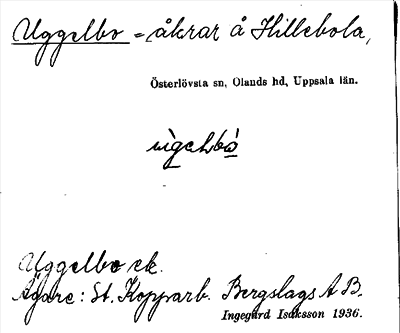 Uggelbo = åkrar å Hillebola,
Österlövsta sn, Olands hd, Uppsala län.
Uggelbo, ek.
Ägare: St. Kopparb. Bergslags A B.
Ingegärd Isaksson 1936.